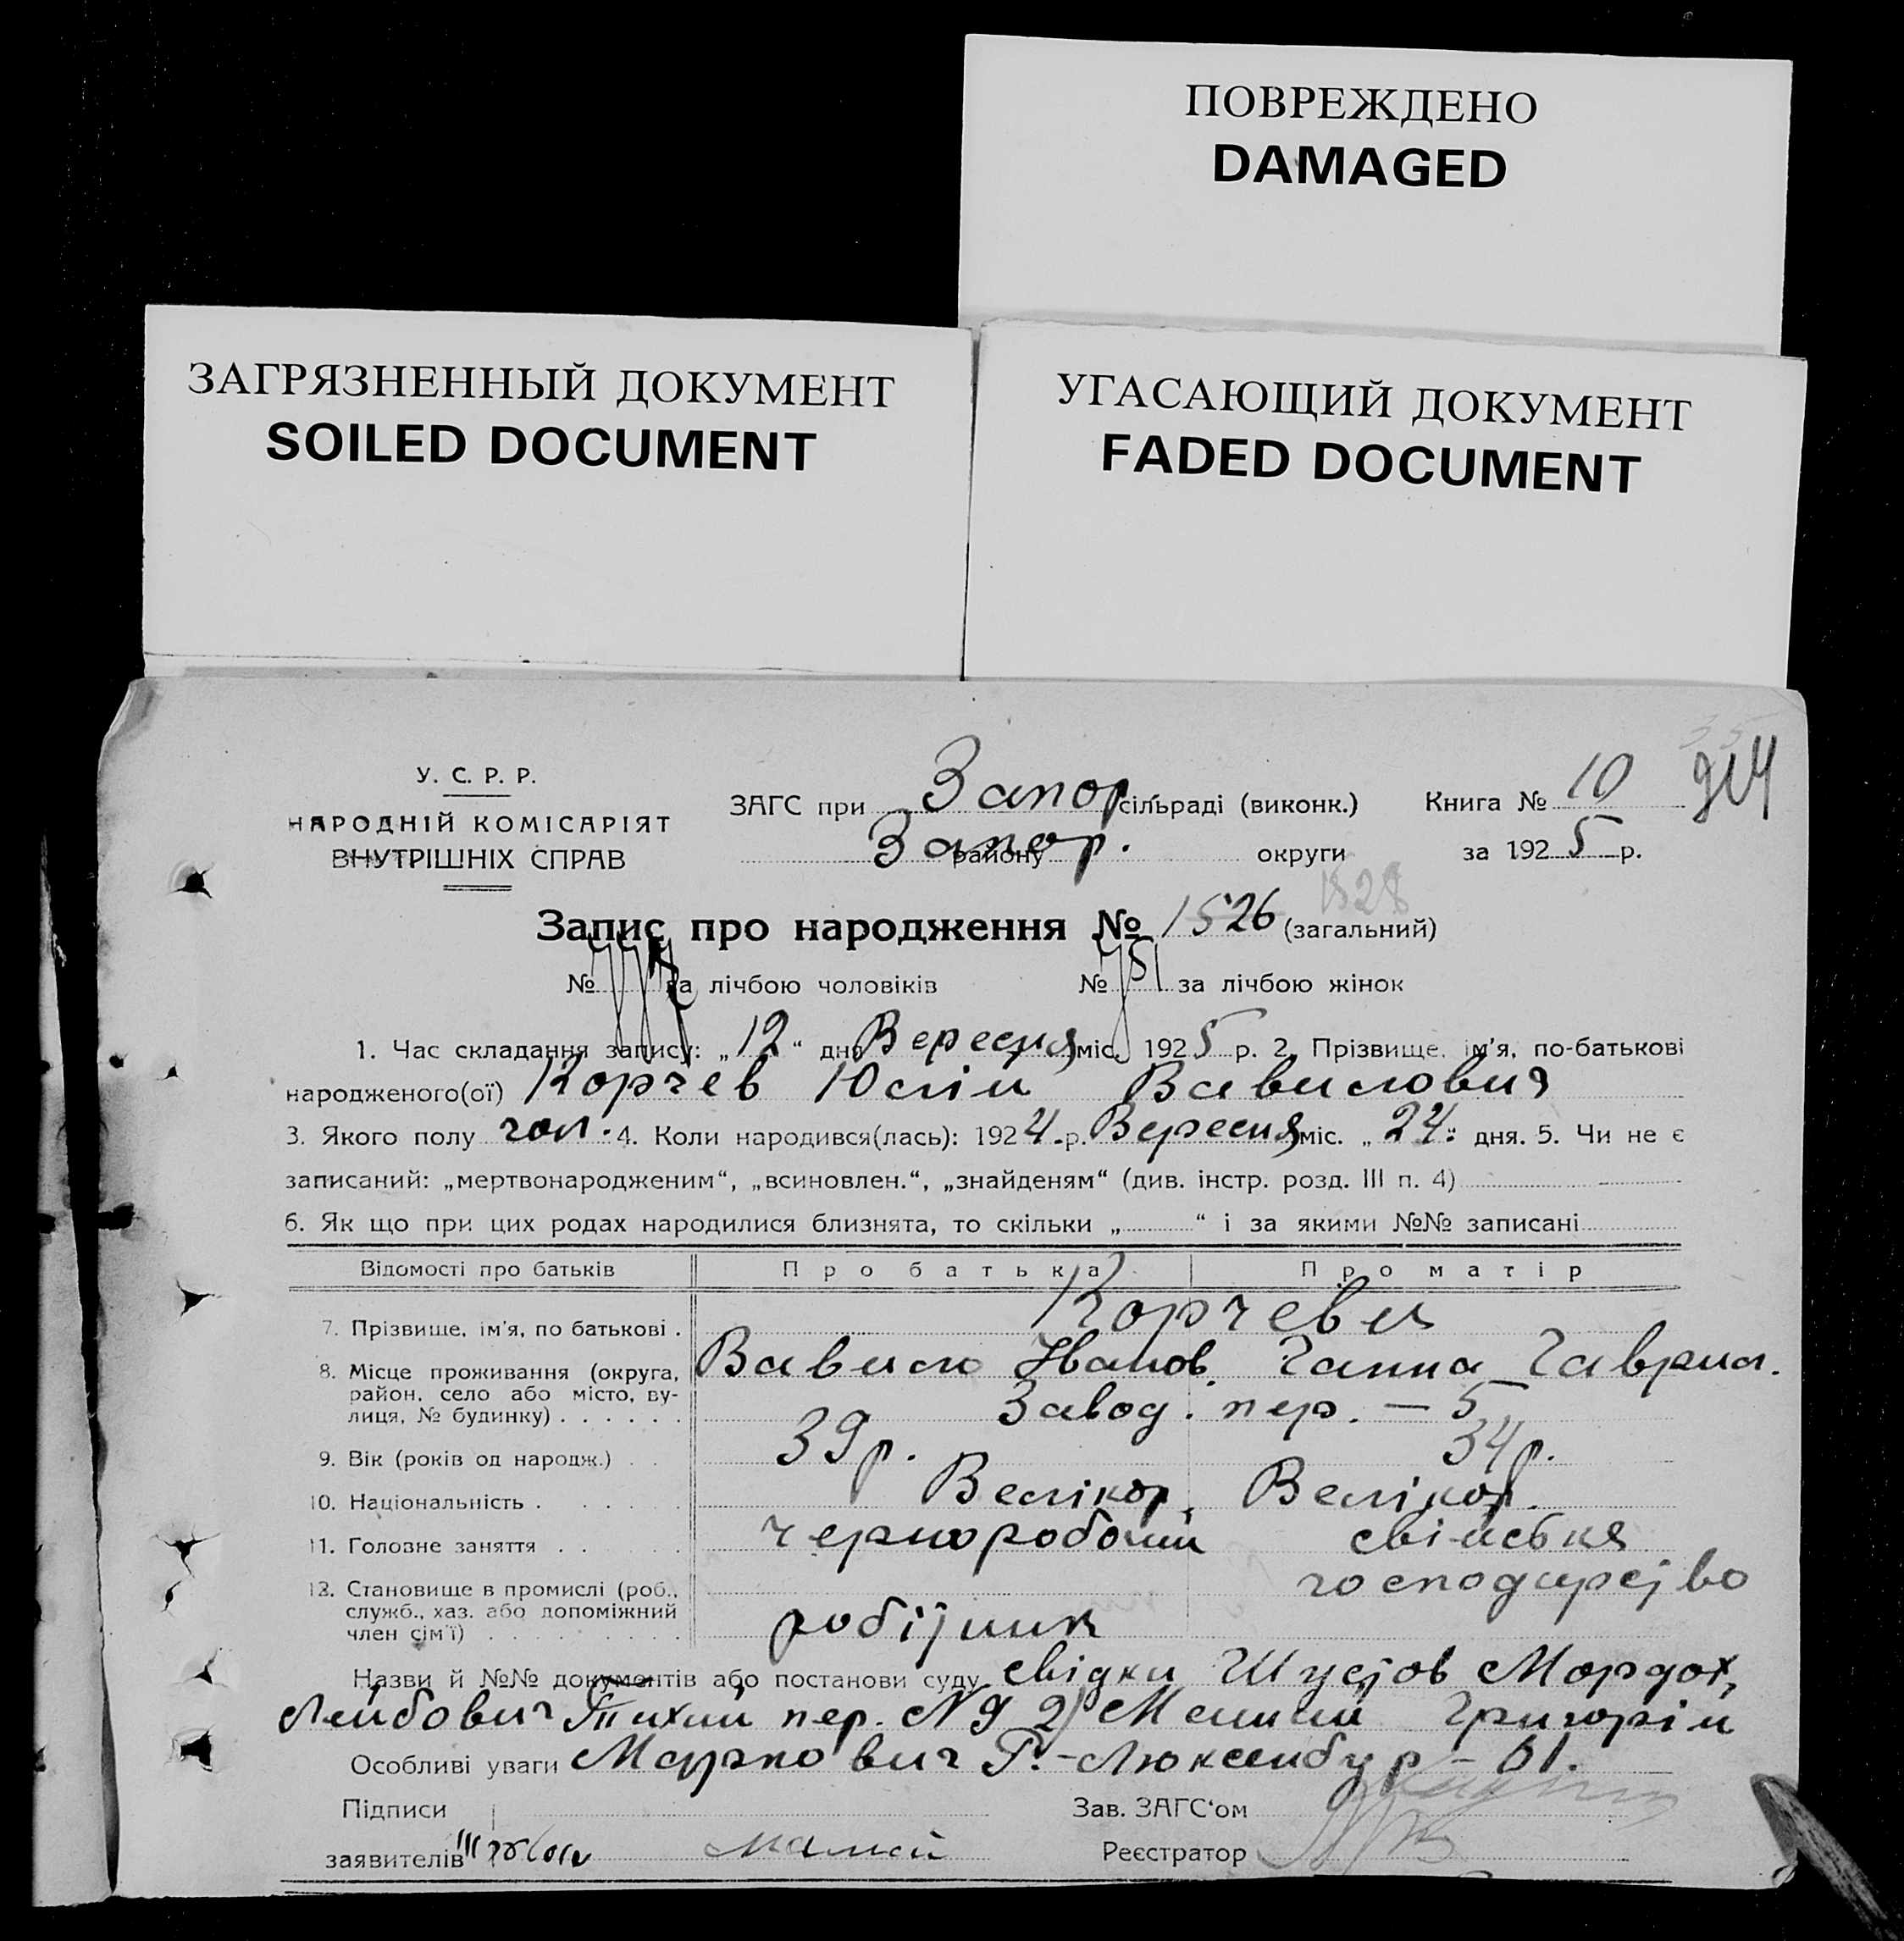 ПОВРЕЖДЕНО
DAMAGED
ЗАГРЯЗНЕННЫЙ ДОКУМЕНТ
SOILED DOCUMENT
УГАСАЮЩИЙ ДОКУМЕНТ
FADED DOCUMENT
У. С. Р. Р.
НАРОДНІЙ КОМІСАРІЯТ
ВНУТРІШНІХ СПРАВ
ЗАГС при Запор сільраді (виконк.) Книга № 10
Запор. району округи за 1925 р.
Запис про народження № 1526 (загальний) 1528
№ за лічбою чоловіків № 751 за лічбою жінок
1. Час складання запису: „12“ дня Вересня міс. 1925 р. 2. Прізвище, ім'я, по-батькові
народженого(ої) Корчев Юлій Вавилович
3. Якого полу чол. 4. Коли народився(лась): 1924 р. Вересня міс. „24“ дня. 5. Чи не є
записаний: „мертвонародженим“, „всиновлен.“, „знайденям“ (див. інстр. розд. III п. 4)
6. Як що при цих родах народилися близнята, то скільки „ “ і за якими №№ записані
Відомості про батьків Про батька Про матір
7. Прізвище, ім'я, по батькові . Корчеви
8. Місце проживання (округа, Вавило Іванов. Ганна Гаврил.
район, село або місто, ву-
лиця, № будинку) . . . . . . Завод. пер. — 5
9. Вік (років од народж.) . . 39 р. 34 р.
10. Національність . . . . . . Велікор. Велікор.
11. Головне заняття . . . . . черноробочий свійське
господарство
12. Становище в промислі (роб.,
служб., хаз. або допоміжний
член сім'ї) . . . . . . . . . робітник
Назви й №№ документів або постанови суду свідки Шустов Мордох,
Лейбович Тихий пер. № 9 2) Малий Григорій
Особливі уваги Маркович Р.-Люксембур - 61.
Підписи Зав. ЗАГС'ом
заявителів Малий Реєстратор